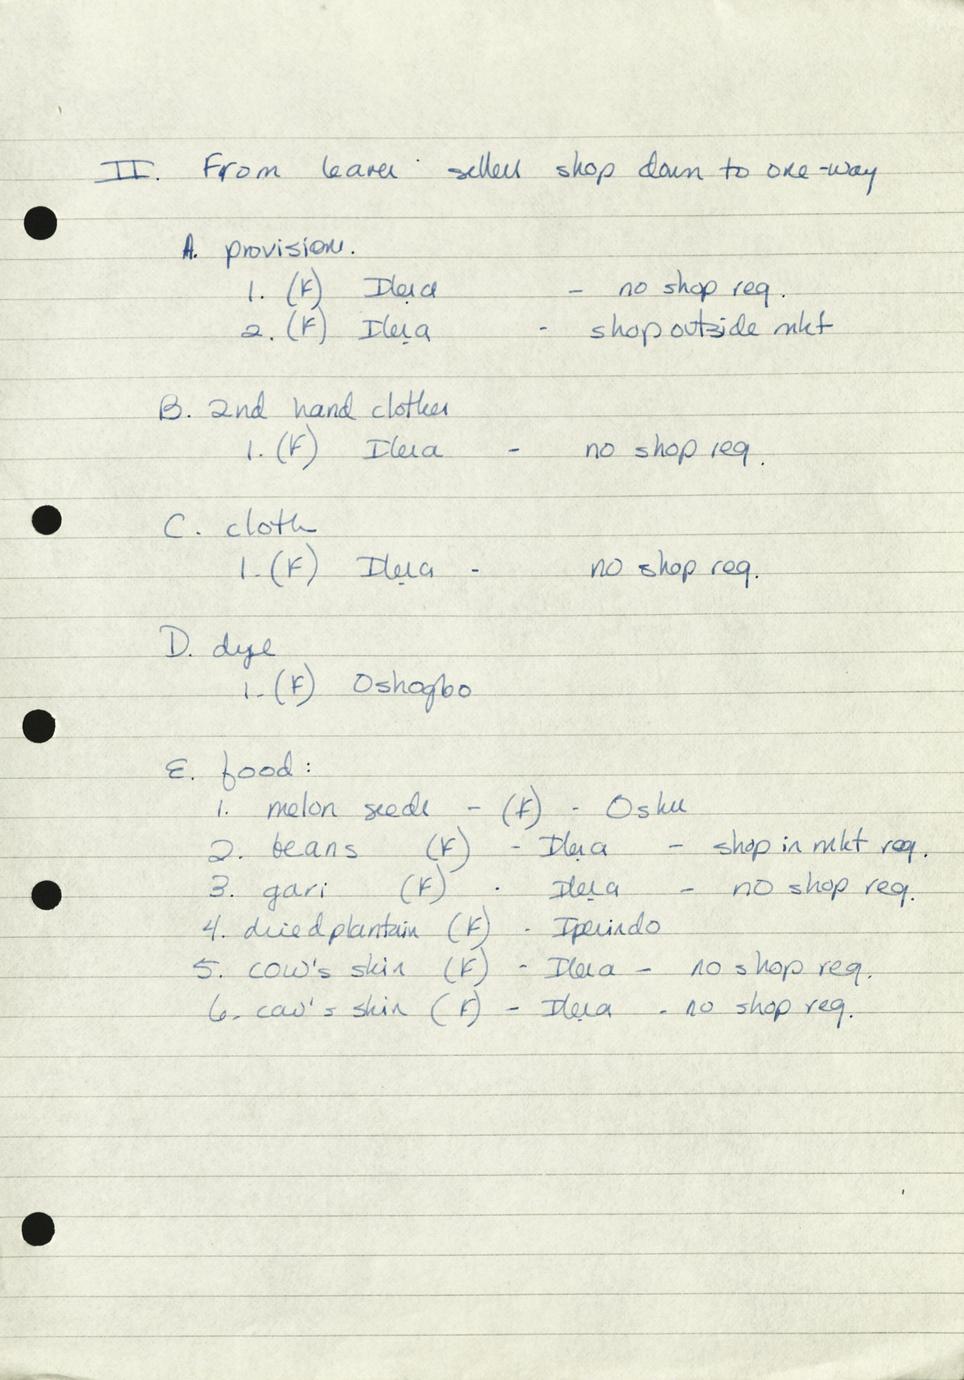 II. From leaves seller shop down to one-way
A. provision.
1. (F) Ilesa - no shop req.
2. (F) Ileṣa - shop outside mkt
B. 2nd hand clothes
1. (F) Ilesa - no shop req.
C. cloth
1. (F) Ileṣa - no shop req.
D. dye
1. (F) Oshogbo
E. food:
1. melon seeds - (F) - Oshu
2. beans (F) - Ileṣa - shop in mkt req.
3. gari (F) - Ileṣa - no shop req.
4. dried plantain (F) - Iperindo
5. cow's skin (F) - Ilesa - no shop req.
6. cow's skin (F) - Ileṣa - no shop req.